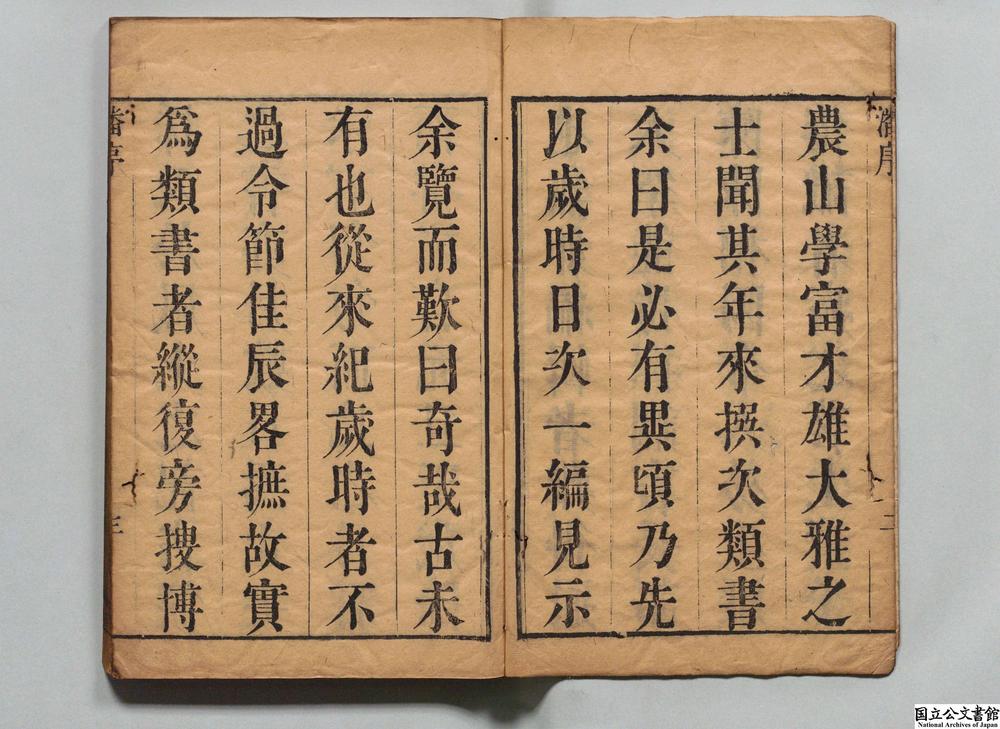 潘序
二
農山學富才雄大雅之
士聞其年來撰次類書
余曰是必有異頃乃先
以歲時日次一編見示
余覽而歎曰奇哉古未
有也從來紀歲時者不
過令節佳辰畧摭故實
爲類書者縱復旁搜博
潘序
三
国立公文書館
National Archives of Japan